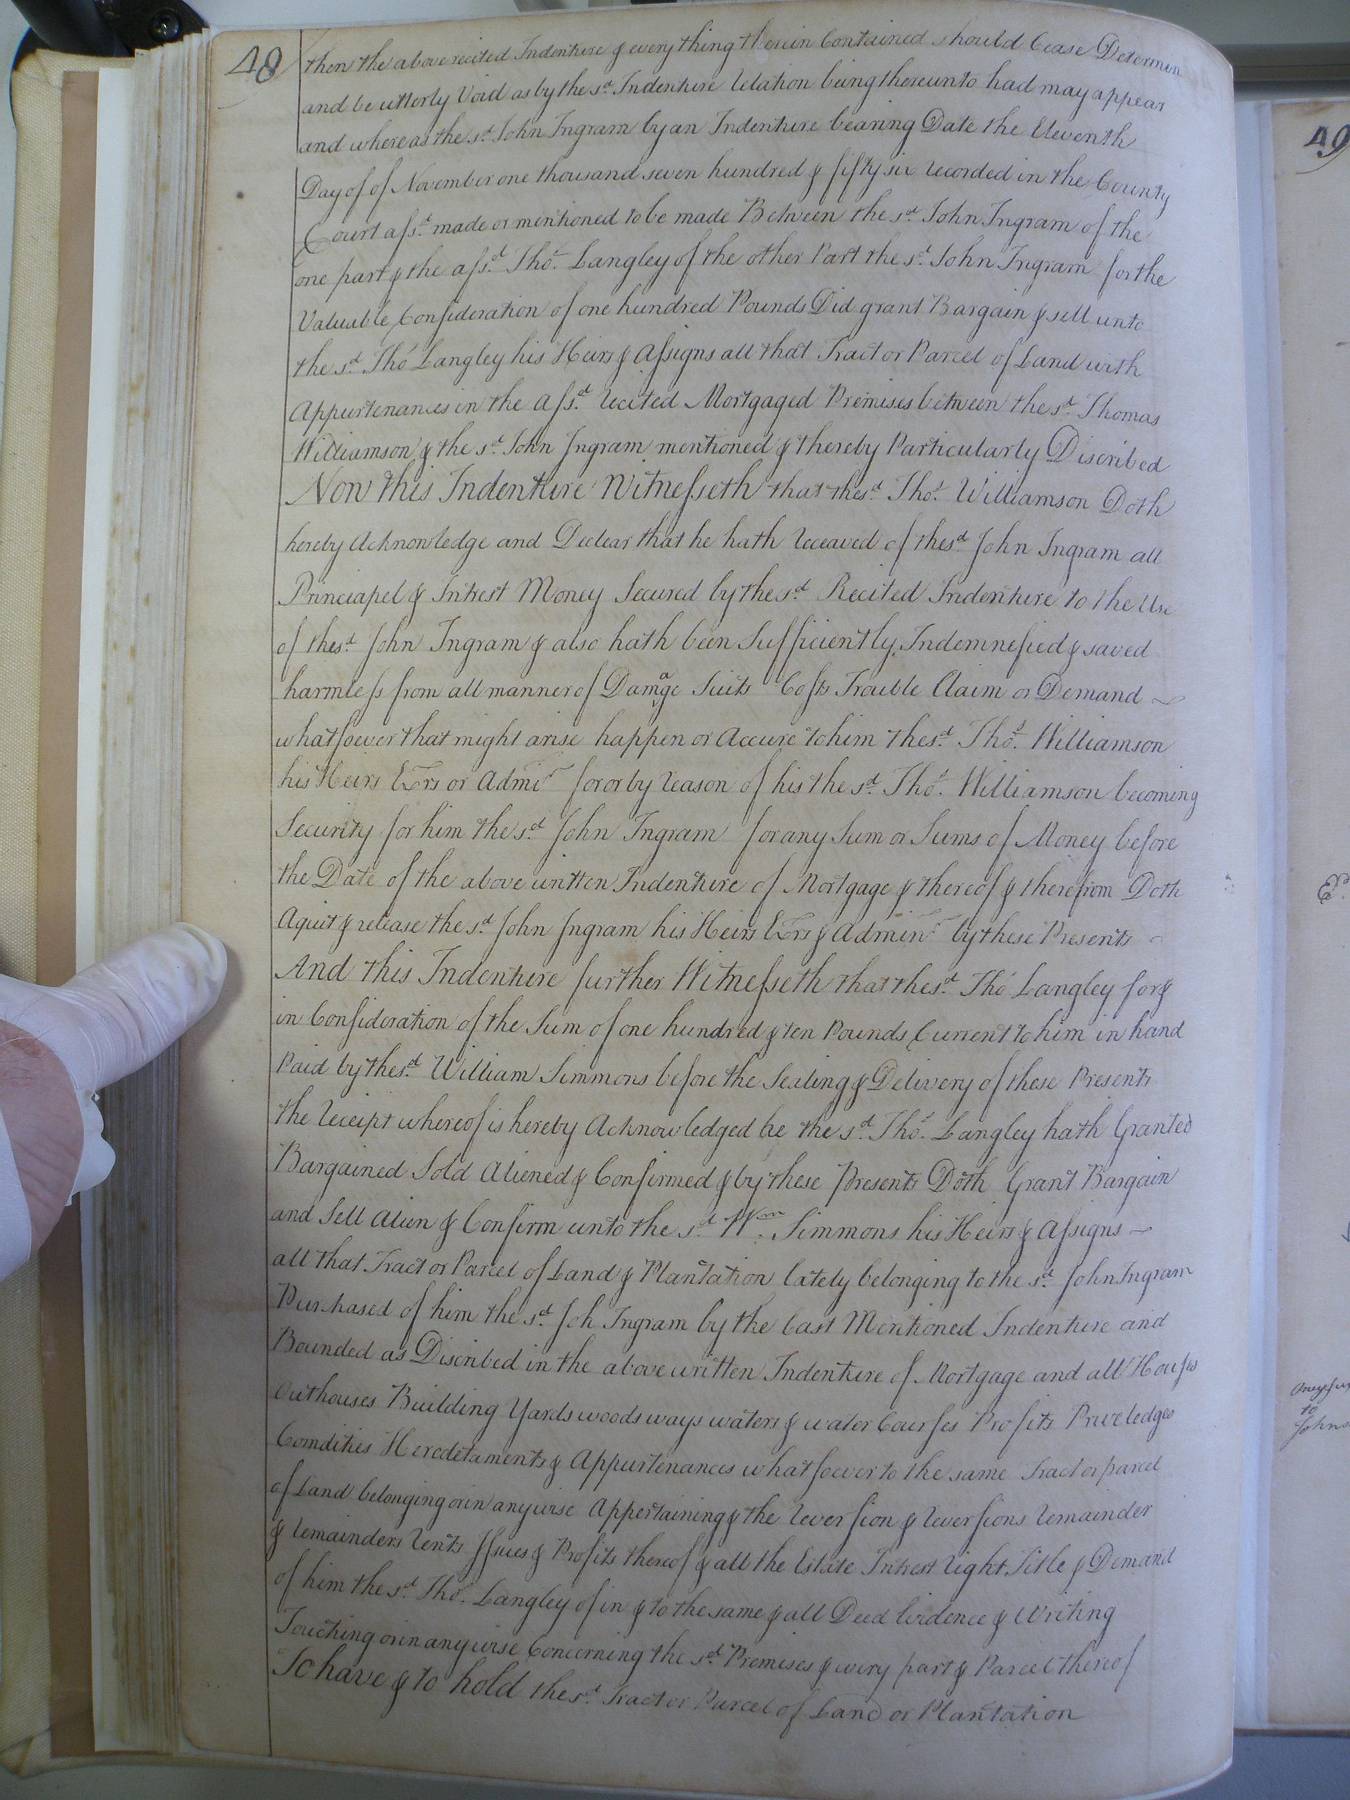 48
then the above recited Indenture & every thing therein Contained should Cease Determin
and be utterly Void as by the sd. Indenture Relation being thereunto had may appear
and whereas the sd. John Ingram by an Indenture bearing Date the Eleventh
Day of of November one thousand seven hundred & fifty six recorded in the County
Court afsd. made or mentioned to be made Between the sd. John Ingram of the
one part & the afsd. Thos. Langley of the other Part the sd. John Ingram for the
Valuable Consideration of one hundred Pounds Did grant Bargain & sell unto
the sd. Thos Langley his Heirs & Assigns all that Tract or Parcel of Land with
Appurtenances in the afsd. recited Mortgaged Premises between the sd. Thomas
Williamson & the sd. John Ingram mentioned & thereby Particularly Discribed
Now this Indenture Witnesseth that the sd. Thos. Williamson Doth
hereby Acknowledge and Declear that he hath receaved of the sd. John Ingram all
Princiapel & Intrest Money Secured by the sd. Recited Indenture to the Use
of the sd. John Ingram & also hath been Sufficiently Indemnefied & saved
harmless from all manner of Damage Suits Costs Trouble Claim or Demand
whatsoever that might arise happen or Accure to him the sd. Thos. Williamson
his Heirs Exrs or Admr for or by reason of his the sd. Thos. Williamson becoming
Security for him the sd. John Ingram for any Sum or Sums of Money before
the Date of the above written Indenture of Mortgage & thereof & therefrom Doth
Aquit & release the sd. John Ingram his Heirs Exrs & Adminr by these Presents
And this Indenture further Witnesseth that the sd. Thos Langley for &
in Consideration of the Sum of one hundred & ten Pounds Current to him in hand
Paid by the sd. William Simmons before the Sealing & Delivery of these Presents
the receipt whereof is hereby Acknowledged he the sd. Thos. Langley hath Granted
Bargained Sold Aliened & Confirmed & by these Presents Doth Grant Bargain
and Sell Alien & Confirm unto the sd. Wm. Simmons his Heirs & Assigns
all that Tract or Parcel of Land & Plantation lately belonging to the sd. John Ingram
Purchased of him the sd. Joh Ingram by the last Mentioned Indenture and
Bounded as Discribed in the above written Indenture of Mortgage and all Houses
Outhouses Building Yards woods ways waters & water Courses Profits Priveledges
Comdities Heredetaments & Appurtenances whatsoever to the same Tract or parcel
of Land belonging or in anywise Appertaining & the reversion & reversions remainder
& remainders rents Issues & Profits thereof & all the Estate Intrest right Title & Demand
of him the sd. Thos. Langley of in & to the same & all Deed Evidence & Writing
Touching or in anywise Concerning the sd. Premises & every part & Parcel thereof
To have & to hold the sd. Tract or Parcel of Land or Plantation
49
to